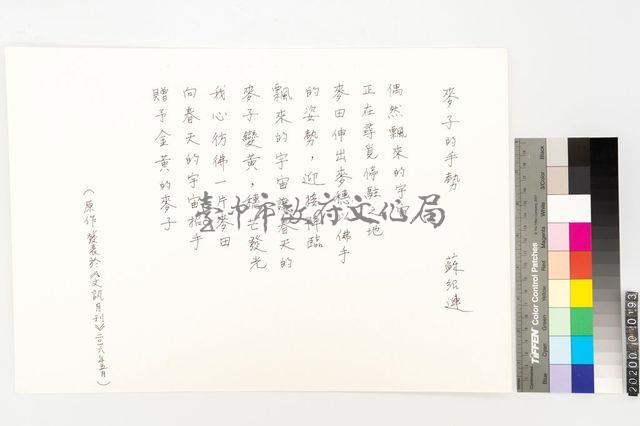 麥子的手勢
蘇紹連
偶然飄來的宇宙
正在尋覓停駐之地
麥田伸出麥穗 佛手
的姿勢，迎接降臨
飄來的宇宙 春天的
麥子變黃，穗芒發光
我心彷彿一片麥田
向春天的宇宙招手
贈予金黃的麥子
（原作發表於《文訊月刊》二〇一六年五月）
臺中市政府文化局
TIFFEN Color Control Patches
Blue
Cyan
Green
Yellow
Red
Magenta
White
3/Color
Black
20200 0 0193